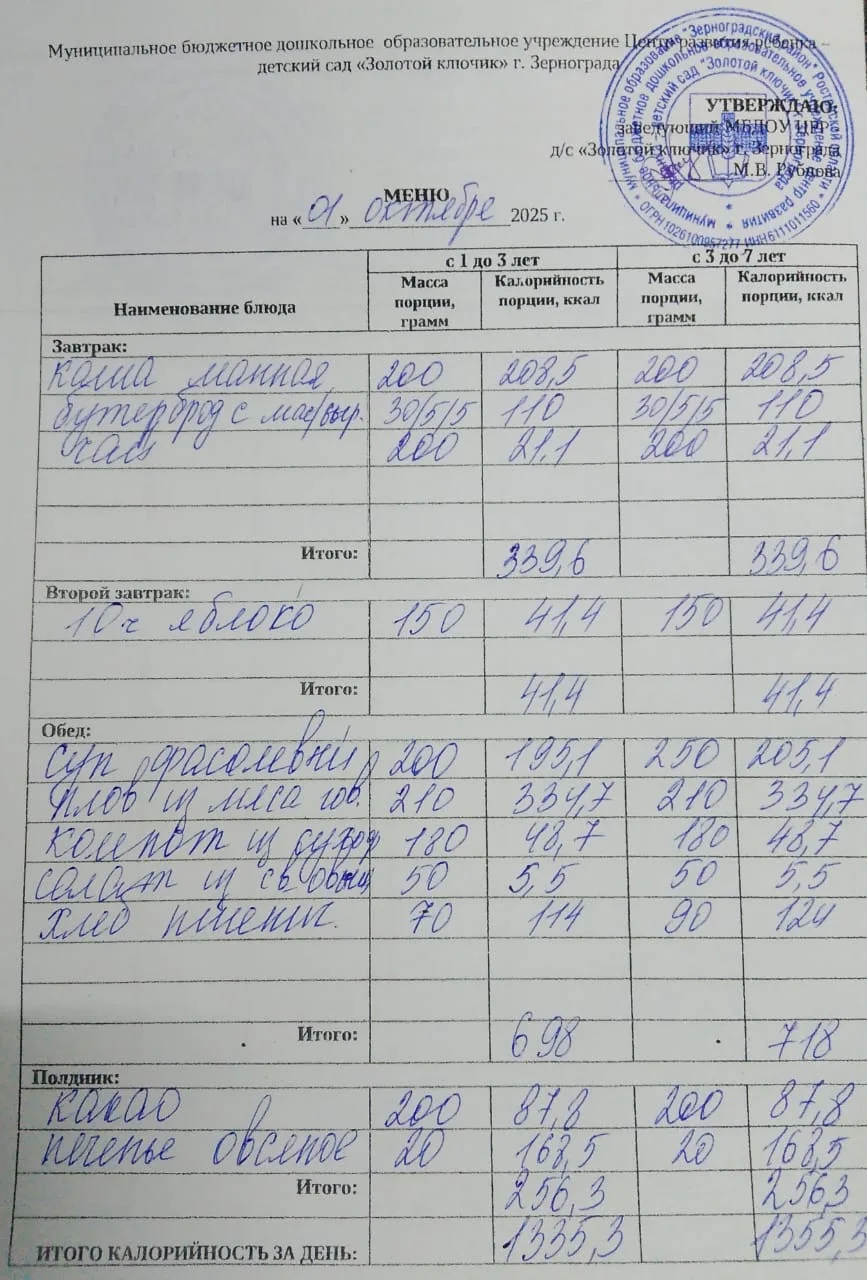 Муниципальное бюджетное дошкольное образовательное учреждение Центр развития ребенка –
детский сад «Золотой ключик» г. Зернограда
УТВЕРЖДАЮ:
заведующий МБДОУ ЦРР
д/с «Золотой ключик» г. Зернограда
М.В. Рублова
МЕНЮ
на « 01 » октября 2025 г.
Наименование блюда с 1 до 3 лет с 3 до 7 лет
Масса порции, грамм Калорийность порции, ккал Масса порции, грамм Калорийность порции, ккал
Завтрак:
каша манная 200 208,5 200 208,5
бутерброд с мас/сыр. 30/5/5 110 30/5/5 110
чай 200 21,1 200 21,1
Итого: 339,6 339,6
Второй завтрак:
10ч яблоко 150 41,4 150 41,4
Итого: 41,4 41,4
Обед:
суп фасолевый 200 195,1 250 205,1
плов из мяса гов. 210 334,7 210 334,7
компот из сухофр 180 48,7 180 48,7
салат из св. овощ 50 5,5 50 5,5
хлеб пшенич. 70 114 90 124
Итого: 698 718
Полдник:
какао 200 87,8 200 87,8
печенье овсяное 20 168,5 20 168,5
Итого: 256,3 256,3
ИТОГО КАЛОРИЙНОСТЬ ЗА ДЕНЬ: 1335,3 1355,3